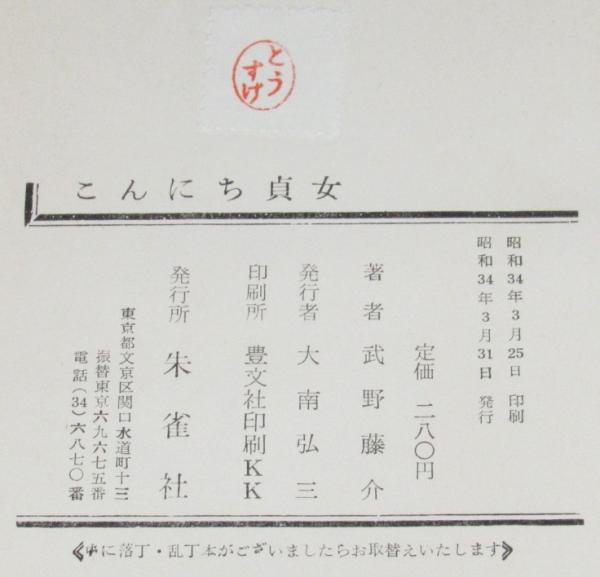 とうすけ
こんにち貞女
昭和34年3月25日 印刷
昭和34年3月31日 発行
定価 二八〇円
著者 武野藤介
発行者 大南弘三
印刷所 豊文社印刷KK
発行所 朱雀社
東京都文京区関口水道町十三
振替東京六九六七五番
電話(34)六八七〇番
《中に落丁・乱丁本がございましたらお取替えいたします》